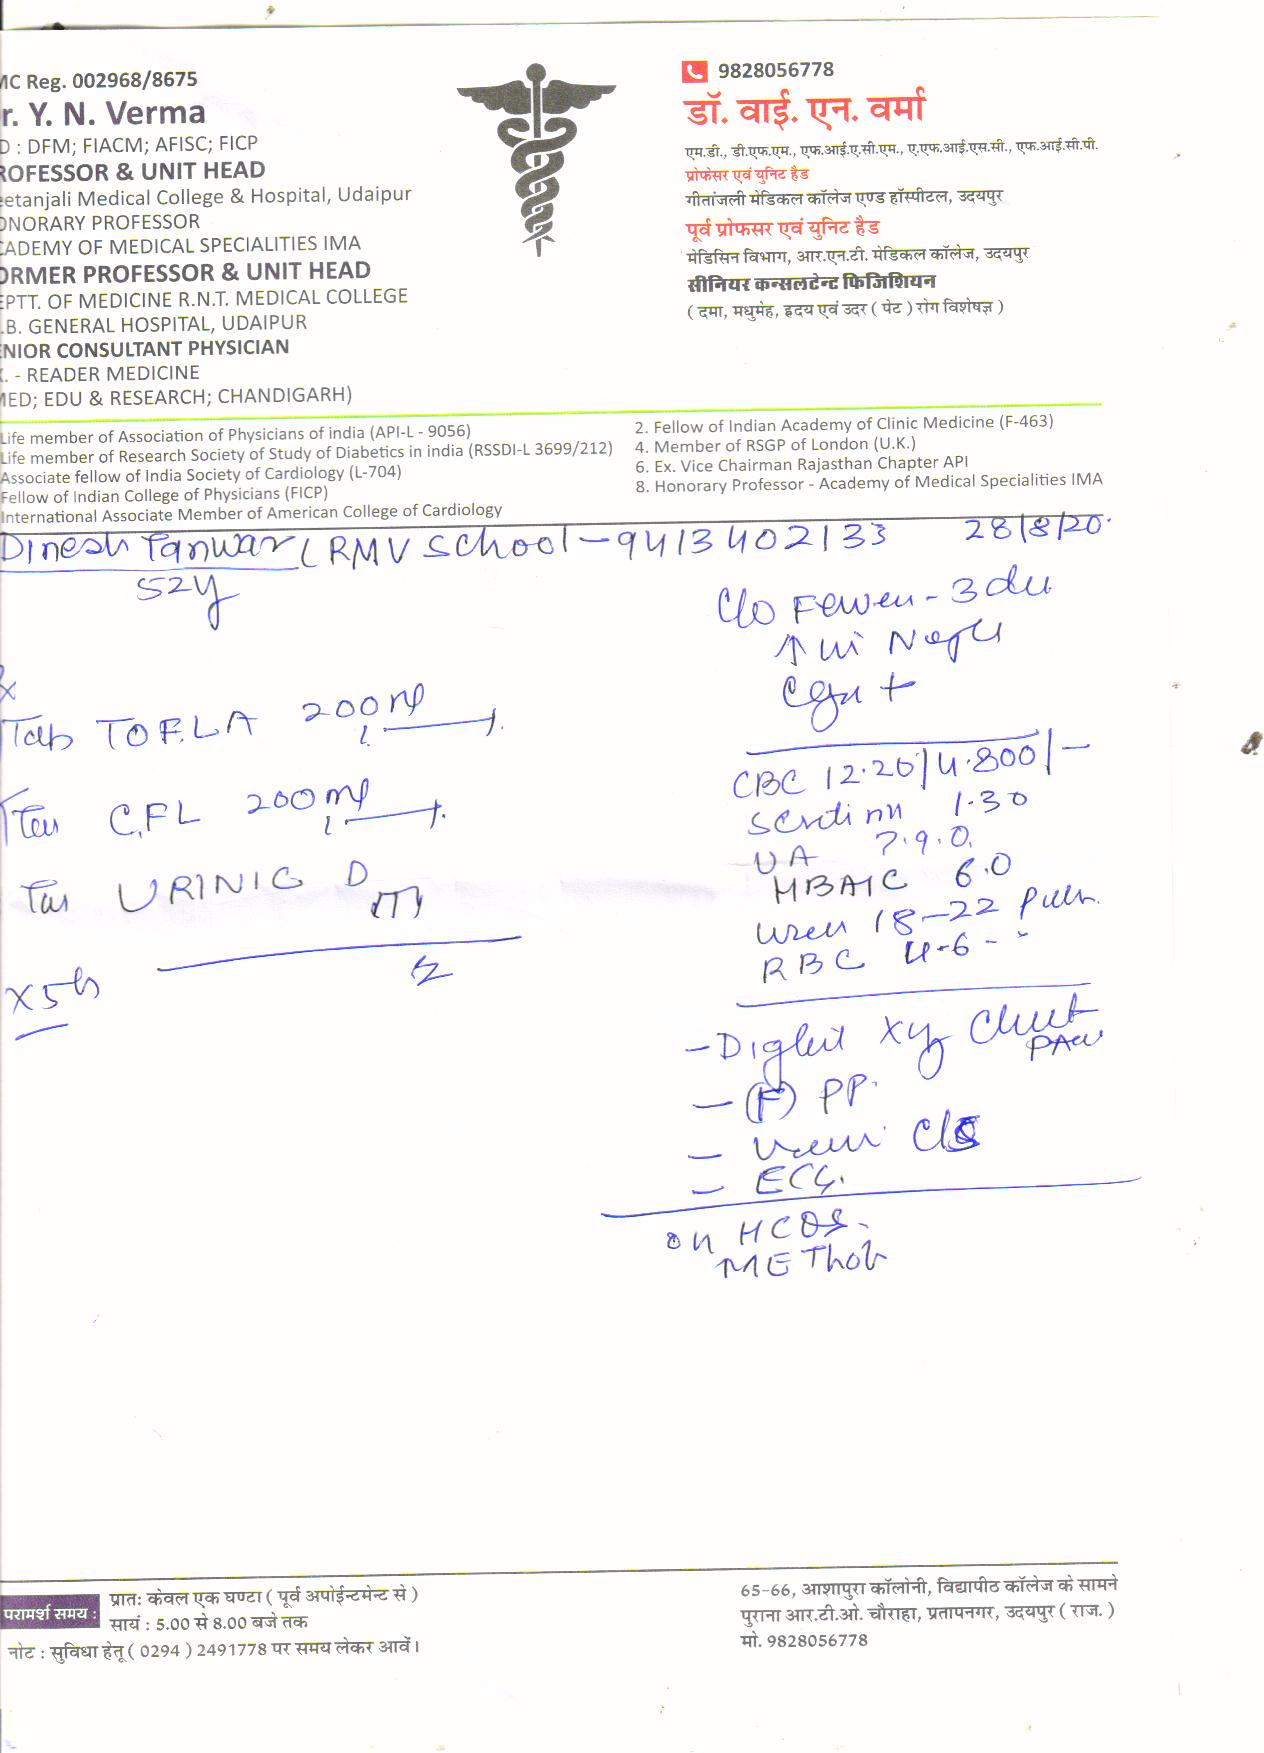 MC Reg. 002968/8675
r. Y. N. Verma
D : DFM; FIACM; AFISC; FICP
ROFESSOR & UNIT HEAD
eetanjali Medical College & Hospital, Udaipur
ONORARY PROFESSOR
CADEMY OF MEDICAL SPECIALITIES IMA
ORMER PROFESSOR & UNIT HEAD
EPTT. OF MEDICINE R.N.T. MEDICAL COLLEGE
.B. GENERAL HOSPITAL, UDAIPUR
ENIOR CONSULTANT PHYSICIAN
X. - READER MEDICINE
MED; EDU & RESEARCH; CHANDIGARH)
9828056778
डॉ. वाई. एन. वर्मा
एम.डी., डी.एफ.एम., एफ.आई.ए.सी.एम., ए.एफ.आई.एस.सी., एफ.आई.सी.पी.
प्रोफेसर एवं युनिट हैड
गीतांजली मेडिकल कॉलेज एण्ड हॉस्पीटल, उदयपुर
पूर्व प्रोफसर एवं युनिट हैड
मेडिसिन विभाग, आर.एन.टी. मेडिकल कॉलेज, उदयपुर
सीनियर कन्सलटेन्ट फिजिशियन
( दमा, मधुमेह, हृदय एवं उदर ( पेट ) रोग विशेषज्ञ )
Life member of Association of Physicians of india (API-L - 9056)
Life member of Research Society of Study of Diabetics in india (RSSDI-L 3699/212)
Associate fellow of India Society of Cardiology (L-704)
Fellow of Indian College of Physicians (FICP)
International Associate Member of American College of Cardiology
2. Fellow of Indian Academy of Clinic Medicine (F-463)
4. Member of RSGP of London (U.K.)
6. Ex. Vice Chairman Rajasthan Chapter API
8. Honorary Professor - Academy of Medical Specialities IMA
Dinesh Tanwar (RMV School - 9413402133 28/8/20
52y
C/o - 3
↑
+
CBC 12.20/4.800/-
1.30
UA 7.9.0
HBA1C 6.0
18-22
RBC 4-6 - "
Tab TOFLA 200
C.FL 200
URINIC D
x 5
- Xy Chest
PA
- (F) PP.
- C/S
- ECG.
on HCQS
METhob
परामर्श समय :
प्रातः केवल एक घण्टा ( पूर्व अपोईन्टमेन्ट से )
सायं : 5.00 से 8.00 बजे तक
नोट : सुविधा हेतू ( 0294 ) 2491778 पर समय लेकर आवें।
65-66, आशापुरा कॉलोनी, विद्यापीठ कॉलेज के सामने
पुराना आर.टी.ओ. चौराहा, प्रतापनगर, उदयपुर ( राज. )
मो. 9828056778